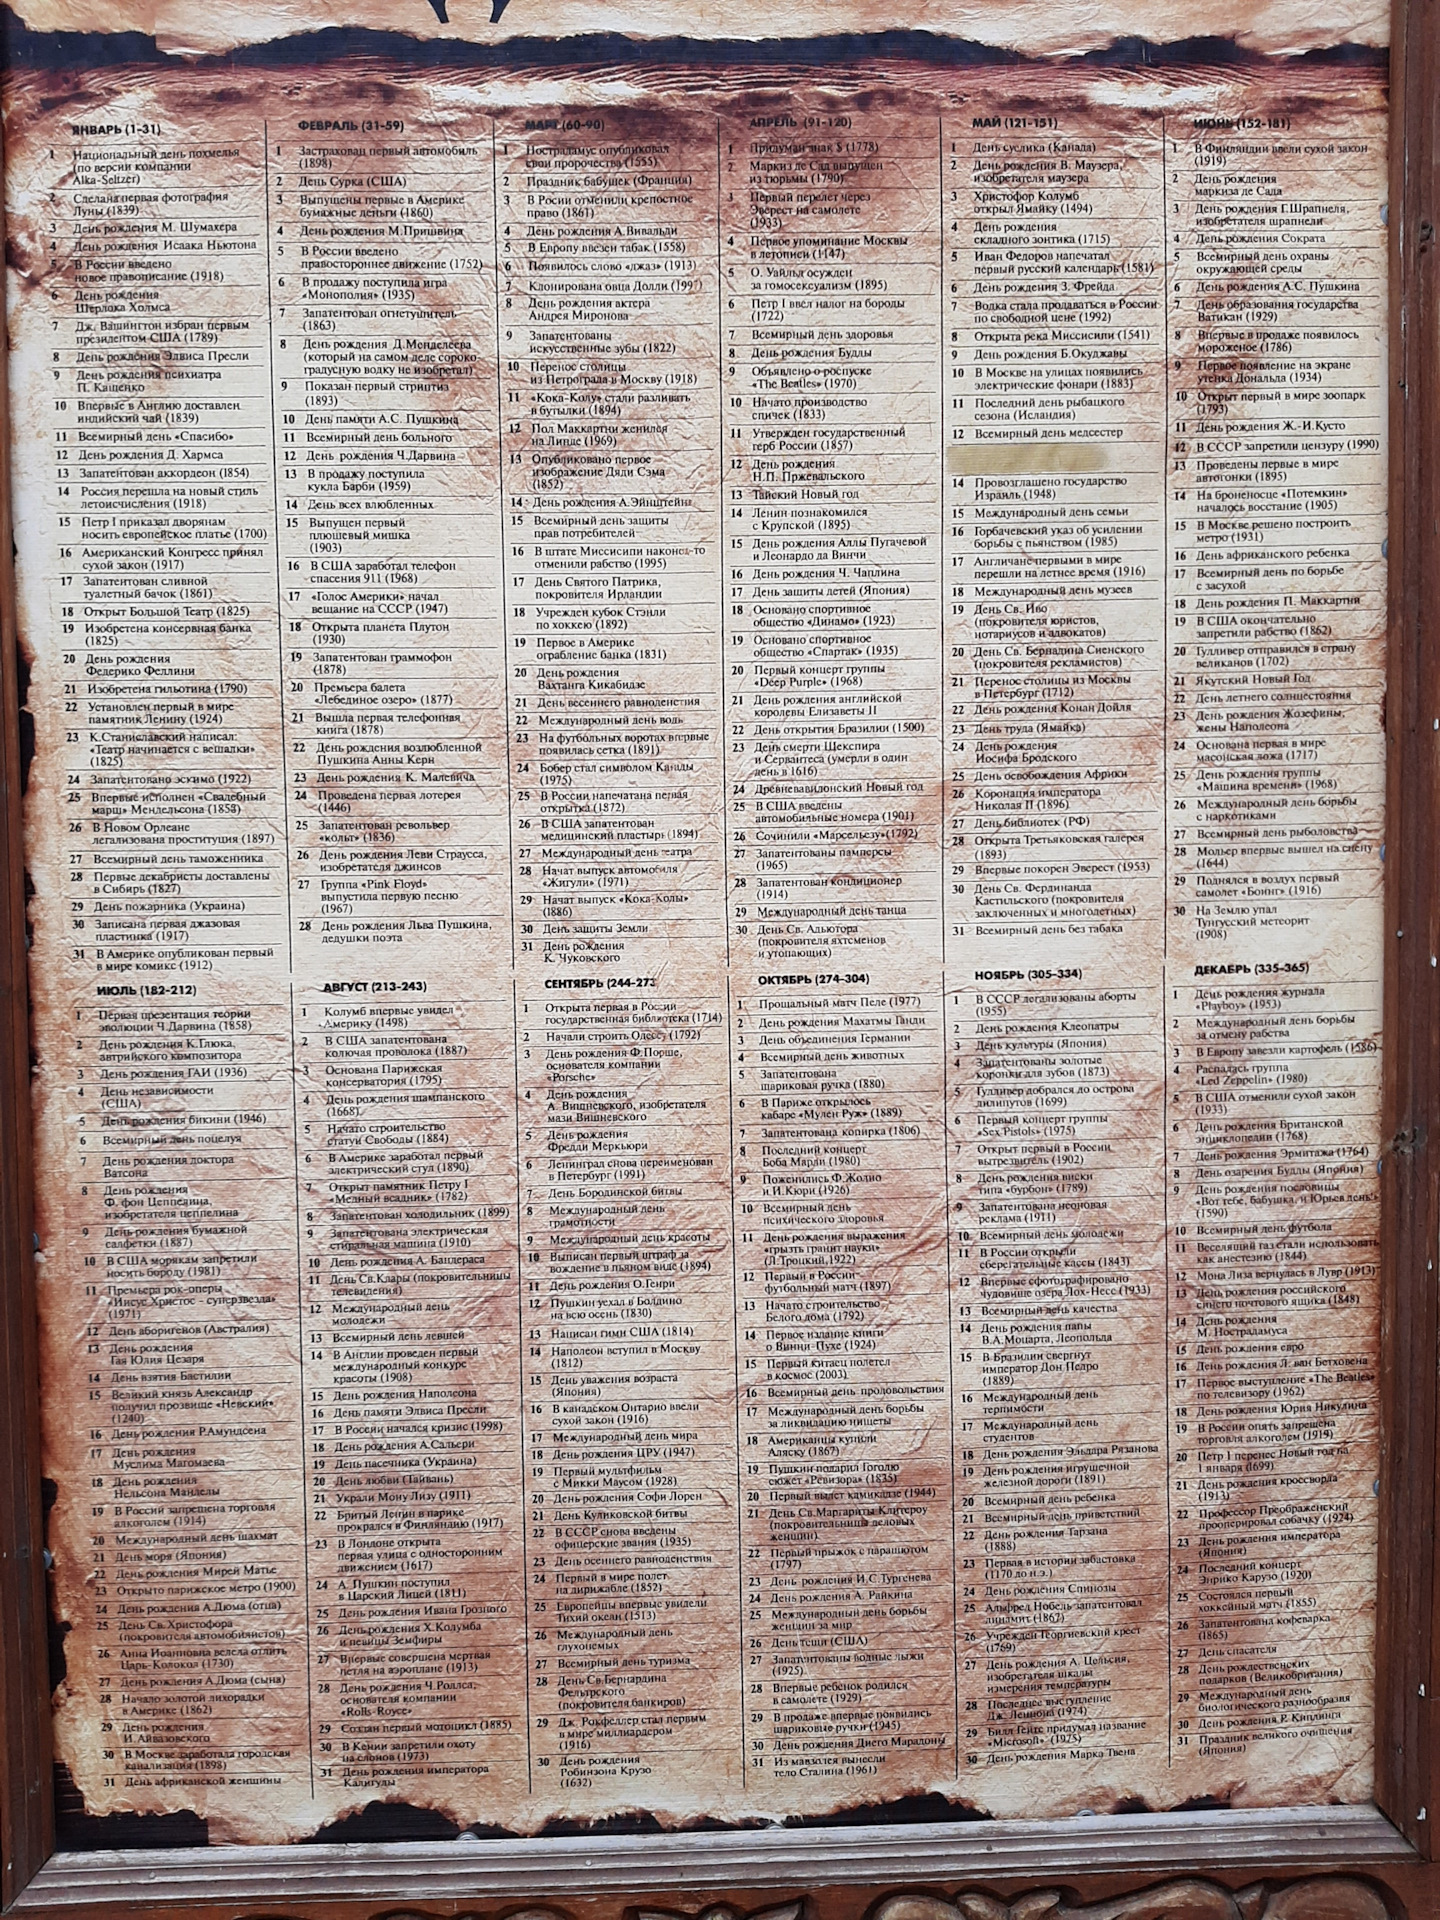 ЯНВАРЬ (1-31)
1 Национальный день похмелья
(по версии компании
Alka-Seltzer)
2 Сделана первая фотография
Луны (1839)
3 День рождения М. Шумахера
4 День рождения Исаака Ньютона
5 В России введено
новое правописание (1918)
6 День рождения
Шерлока Холмса
7 Дж. Вашингтон избран первым
президентом США (1789)
8 День рождения Элвиса Пресли
9 День рождения психиатра
П. Кащенко
10 Впервые в Англию доставлен
индийский чай (1839)
11 Всемирный день «Спасибо»
12 День рождения Д. Хармса
13 Запатентован аккордеон (1854)
14 Россия перешла на новый стиль
летоисчисления (1918)
15 Петр I приказал дворянам
носить европейское платье (1700)
16 Американский Конгресс принял
сухой закон (1917)
17 Запатентован сливной
туалетный бачок (1861)
18 Открыт Большой Театр (1825)
19 Изобретена консервная банка
(1825)
20 День рождения
Федерико Феллини
21 Изобретена гильотина (1790)
22 Установлен первый в мире
памятник Ленину (1924)
23 К.Станиславский написал:
«Театр начинается с вешалки»
(1825)
24 Запатентовано эскимо (1922)
25 Впервые исполнен «Свадебный
марш» Мендельсона (1858)
26 В Новом Орлеане
легализована проституция (1897)
27 Всемирный день таможенника
28 Первые декабристы доставлены
в Сибирь (1827)
29 День пожарника (Украина)
30 Записана первая джазовая
пластинка (1917)
31 В Америке опубликован первый
в мире комикс (1912)
ФЕВРАЛЬ (31-59)
1 Застрахован первый автомобиль
(1898)
2 День Сурка (США)
3 Выпущены первые в Америке
бумажные деньги (1860)
4 День рождения М.Пришвина
5 В России введено
правостороннее движение (1752)
6 В продажу поступила игра
«Монополия» (1935)
7 Запатентован огнетушитель
(1863)
8 День рождения Д.Менделеева
(который на самом деле сороко-
градусную водку не изобретал)
9 Показан первый стриптиз
(1893)
10 День памяти А.С. Пушкина
11 Всемирный день больного
12 День рождения Ч.Дарвина
13 В продажу поступила
кукла Барби (1959)
14 День всех влюбленных
15 Выпущен первый
плюшевый мишка
(1903)
16 В США заработал телефон
спасения 911 (1968)
17 «Голос Америки» начал
вещание на СССР (1947)
18 Открыта планета Плутон
(1930)
19 Запатентован граммофон
(1878)
20 Премьера балета
«Лебединое озеро» (1877)
21 Вышла первая телефонная
книга (1878)
22 День рождения возлюбленной
Пушкина Анны Керн
23 День рождения К. Малевича
24 Проведена первая лотерея
(1446)
25 Запатентован револьвер
«кольт» (1836)
26 День рождения Леви Страусса,
изобретателя джинсов
27 Группа «Pink Floyd»
выпустила первую песню
(1967)
28 День рождения Льва Пушкина,
дедушки поэта
МАРТ (60-90)
1 Нострадамус опубликовал
свои пророчества (1555)
2 Праздник бабушек (Франция)
3 В Росии отменили крепостное
право (1861)
4 День рождения А.Вивальди
5 В Европу ввезен табак (1558)
6 Появилось слово «джаз» (1913)
7 Клонирована овца Долли (1997)
8 День рождения актера
Андрея Миронова
9 Запатентованы
искусственные зубы (1822)
10 Перенос столицы
из Петрограда в Москву (1918)
11 «Кока-Колу» стали разливать
в бутылки (1894)
12 Пол Маккартни женился
на Линде (1969)
13 Опубликовано первое
изображение Дяди Сэма
(1852)
14 День рождения А.Эйнштейна
15 Всемирный день защиты
прав потребителей
16 В штате Миссисипи наконец-то
отменили рабство (1995)
17 День Святого Патрика,
покровителя Ирландии
18 Учрежден кубок Стэнли
по хоккею (1892)
19 Первое в Америке
ограбление банка (1831)
20 День рождения
Вахтанга Кикабидзе
21 День весеннего равноденствия
22 Международный день воды
23 На футбольных воротах впервые
появилась сетка (1891)
24 Бобер стал символом Канады
(1975)
25 В России напечатана первая
открытка (1872)
26 В США запатентован
медицинский пластырь (1894)
27 Международный день театра
28 Начат выпуск автомобиля
«Жигули» (1971)
29 Начат выпуск «Кока-Колы»
(1886)
30 День защиты Земли
31 День рождения
К. Чуковского
АПРЕЛЬ (91-120)
1 Придуман знак $ (1778)
2 Маркиз де Сад выпущен
из тюрьмы (1790)
3 Первый перелет через
Эверест на самолете
(1933)
4 Первое упоминание Москвы
в летописи (1147)
5 О. Уайльд осужден
за гомосексуализм (1895)
6 Петр I ввел налог на бороды
(1722)
7 Всемирный день здоровья
8 День рождения Будды
9 Объявлено о роспуске
«The Beatles» (1970)
10 Начато производство
спичек (1833)
11 Утвержден государственный
герб России (1857)
12 День рождения
Н.П. Пржевальского
13 Тайский Новый год
14 Ленин познакомился
с Крупской (1895)
15 День рождения Аллы Пугачевой
и Леонардо да Винчи
16 День рождения Ч. Чаплина
17 День защиты детей (Япония)
18 Основано спортивное
общество «Динамо» (1923)
19 Основано спортивное
общество «Спартак» (1935)
20 Первый концерт группы
«Deep Purple» (1968)
21 День рождения английской
королевы Елизаветы II
22 День открытия Бразилии (1500)
23 День смерти Шекспира
и Сервантеса (умерли в один
день в 1616)
24 Древневавилонский Новый год
25 В США введены
автомобильные номера (1901)
26 Сочинили «Марсельезу»(1792)
27 Запатентованы памперсы
(1965)
28 Запатентован кондиционер
(1914)
29 Международный день танца
30 День Св. Адьютора
(покровителя яхтсменов
и утопающих)
МАЙ (121-151)
1 День суслика (Канада)
2 День рождения В. Маузера,
изобретателя маузера
3 Христофор Колумб
открыл Ямайку (1494)
4 День рождения
складного зонтика (1715)
5 Иван Федоров напечатал
первый русский календарь (1581)
6 День рождения З. Фрейда
7 Водка стала продаваться в России
по свободной цене (1992)
8 Открыта река Миссисипи (1541)
9 День рождения Б.Окуджавы
10 В Москве на улицах появились
электрические фонари (1883)
11 Последний день рыбацкого
сезона (Исландия)
12 Всемирный день медсестер
14 Провозглашено государство
Израиль (1948)
15 Международный день семьи
16 Горбачевский указ об усилении
борьбы с пьянством (1985)
17 Англичане первыми в мире
перешли на летнее время (1916)
18 Международный день музеев
19 День Св. Иво
(покровителя юристов,
нотариусов и адвокатов)
20 День Св. Бернадина Сиенского
(покровителя рекламистов)
21 Перенос столицы из Москвы
в Петербург (1712)
22 День рождения Конан Дойля
23 День труда (Ямайка)
24 День рождения
Иосифа Бродского
25 День освобождения Африки
26 Коронация императора
Николая II (1896)
27 День библиотек (РФ)
28 Открыта Третьяковская галерея
(1893)
29 Впервые покорен Эверест (1953)
30 День Св. Фердинанда
Кастильского (покровителя
заключенных и многодетных)
31 Всемирный день без табака
ИЮНЬ (152-181)
1 В Финляндии ввели сухой закон
(1919)
2 День рождения
маркиза де Сада
3 День рождения Г.Шрапнеля,
изобретателя шрапнели
4 День рождения Сократа
5 Всемирный день охраны
окружающей среды
6 День рождения А.С. Пушкина
7 День образования государства
Ватикан (1929)
8 Впервые в продаже появилось
мороженое (1786)
9 Первое появление на экране
утенка Дональда (1934)
10 Открыт первый в мире зоопарк
(1793)
11 День рождения Ж.-И.Кусто
12 В СССР запретили цензуру (1990)
13 Проведены первые в мире
автогонки (1895)
14 На броненосце «Потемкин»
началось восстание (1905)
15 В Москве решено построить
метро (1931)
16 День африканского ребенка
17 Всемирный день по борьбе
с засухой
18 День рождения П. Маккартни
19 В США окончательно
запретили рабство (1862)
20 Гулливер отправился в страну
великанов (1702)
21 Якутский Новый Год
22 День летнего солнцестояния
23 День рождения Жозефины,
жены Наполеона
24 Основана первая в мире
масонская ложа (1717)
25 День рождения группы
«Машина времени» (1968)
26 Международный день борьбы
с наркотиками
27 Всемирный день рыболовства
28 Мольер впервые вышел на сцену
(1644)
29 Поднялся в воздух первый
самолет «Боинг» (1916)
30 На Землю упал
Тунгусский метеорит
(1908)
ИЮЛЬ (182-212)
1 Первая презентация теории
эволюции Ч.Дарвина (1858)
2 День рождения К.Глюка,
автрийского композитора
3 День рождения ГАИ (1936)
4 День независимости
(США)
5 День рождения бикини (1946)
6 Всемирный день поцелуя
7 День рождения доктора
Ватсона
8 День рождения
Ф. фон Цеппелина,
изобретателя цеппелина
9 День рождения бумажной
салфетки (1887)
10 В США морякам запретили
носить бороду (1981)
11 Премьера рок-оперы
«Иисус Христос - суперзвезда»
(1971)
12 День аборигенов (Австралия)
13 День рождения
Гая Юлия Цезаря
14 День взятия Бастилии
15 Великий князь Александр
получил прозвище «Невский»
(1240)
16 День рождения Р.Амундсена
17 День рождения
Муслима Магомаева
18 День рождения
Нельсона Манделы
19 В России запрещена торговля
алкоголем (1914)
20 Международный день шахмат
21 День моря (Япония)
22 День рождения Мирей Матье
23 Открыто парижское метро (1900)
24 День рождения А.Дюма (отца)
25 День Св.Христофора
(покровителя автомобилистов)
26 Анна Иоанновна велела отлить
Царь-Колокол (1730)
27 День рождения А.Дюма (сына)
28 Начало золотой лихорадки
в Америке (1862)
29 День рождения
И.Айвазовского
30 В Москве заработала городская
канализация (1898)
31 День африканской женщины
АВГУСТ (213-243)
1 Колумб впервые увидел
Америку (1498)
2 В США запатентована
колючая проволока (1887)
3 Основана Парижская
консерватория (1795)
4 День рождения шампанского
(1668)
5 Начато строительство
статуи Свободы (1884)
6 В Америке заработал первый
электрический стул (1890)
7 Открыт памятник Петру I
«Медный всадник» (1782)
8 Запатентован холодильник (1899)
9 Запатентована электрическая
стиральная машина (1910)
10 День рождения А. Бандераса
11 День Св.Клары (покровительницы
телевидения)
12 Международный день
молодежи
13 Всемирный день левшей
14 В Англии проведен первый
международный конкурс
красоты (1908)
15 День рождения Наполеона
16 День памяти Элвиса Пресли
17 В России начался кризис (1998)
18 День рождения А.Сальери
19 День пасечника (Украина)
20 День любви (Тайвань)
21 Украли Мону Лизу (1911)
22 Бритый Ленин в парике
прокрался в Финляндию (1917)
23 В Лондоне открыта
первая улица с односторонним
движением (1617)
24 А. Пушкин поступил
в Царский Лицей (1811)
25 День рождения Ивана Грозного
26 День рождения Х.Колумба
и певицы Земфиры
27 Впервые совершена мертвая
петля на аэроплане (1913)
28 День рождения Ч.Роллса,
основателя компании
«Rolls-Royce»
29 Создан первый мотоцикл (1885)
30 В Кении запретили охоту
на слонов (1973)
31 День рождения императора
Калигулы
СЕНТЯБРЬ (244-273
1 Открыта первая в России
государственная библиотека (1714)
2 Начали строить Одессу (1792)
3 День рождения Ф.Порше,
основателя компании
«Porsche»
4 День рождения
А. Вишневского, изобретателя
мази Вишневского
5 День рождения
Фредди Меркьюри
6 Ленинград снова переименован
в Петербург (1991)
7 День Бородинской битвы
8 Международный день
грамотности
9 Международный день красоты
10 Выписан первый штраф за
вождение в пьяном виде (1894)
11 День рождения О.Генри
12 Пушкин уехал в Болдино
на всю осень (1830)
13 Написан гимн США (1814)
14 Наполеон вступил в Москву
(1812)
15 День уважения возраста
(Япония)
16 В канадском Онтарио ввели
сухой закон (1916)
17 Международный день мира
18 День рождения ЦРУ (1947)
19 Первый мультфильм
с Микки Маусом (1928)
20 День рождения Софи Лорен
21 День Куликовской битвы
22 В СССР снова введены
офицерские звания (1935)
23 День осеннего равноденствия
24 Первый в мире полет
на дирижабле (1852)
25 Европейцы впервые увидели
Тихий океан (1513)
26 Международный день
глухонемых
27 Всемирный день туризма
28 День Св.Бернардина
Фельтрского
(покровителя банкиров)
29 Дж. Рокфеллер стал первым
в мире миллиардером
(1916)
30 День рождения
Робинзона Крузо
(1632)
ОКТЯБРЬ (274-304)
1 Прощальный матч Пеле (1977)
2 День рождения Махатмы Ганди
3 День объединения Германии
4 Всемирный день животных
5 Запатентована
шариковая ручка (1880)
6 В Париже открылось
кабаре «Мулен Руж» (1889)
7 Запатентована копирка (1806)
8 Последний концерт
Боба Марли (1980)
9 Поженились Ф.Жолио
и И.Кюри (1926)
10 Всемирный день
психического здоровья
11 День рождения выражения
«грызть гранит науки»
(Л.Троцкий,1922)
12 Первый в России
футбольный матч (1897)
13 Начато строительство
Белого дома (1792)
14 Первое издание книги
о Винни-Пухе (1924)
15 Первый китаец полетел
в космос (2003)
16 Всемирный день продовольствия
17 Международный день борьбы
за ликвидацию нищеты
18 Американцы купили
Аляску (1867)
19 Пушкин подарил Гоголю
сюжет «Ревизора» (1835)
20 Первый вылет камикадзе (1944)
21 День Св.Маргариты Клитероу
(покровительницы деловых
женщин)
22 Первый прыжок с парашютом
(1797)
23 День рождения И.С.Тургенева
24 День рождения А. Райкина
25 Международный день борьбы
женщин за мир
26 День тещи (США)
27 Запатентованы водные лыжи
(1925)
28 Впервые ребенок родился
в самолете (1929)
29 В продаже впервые появились
шариковые ручки (1945)
30 День рождения Диего Марадоны
31 Из мавзолея вынесли
тело Сталина (1961)
НОЯБРЬ (305-334)
1 В СССР легализованы аборты
(1955)
2 День рождения Клеопатры
3 День культуры (Япония)
4 Запатентованы золотые
коронки для зубов (1873)
5 Гулливер добрался до острова
лилипутов (1699)
6 Первый концерт группы
«Sex Pistols» (1975)
7 Открыт первый в России
вытрезвитель (1902)
8 День рождения виски
типа «бурбон» (1789)
9 Запатентована неоновая
реклама (1911)
10 Всемирный день молодежи
11 В России открыли
сберегательные кассы (1843)
12 Впервые сфотографировано
чудовище озера Лох-Несс (1933)
13 Всемирный день качества
14 День рождения папы
В.А.Моцарта, Леопольда
15 В Бразилии свергнут
император Дон Педро
(1889)
16 Международный день
терпимости
17 Международный день
студентов
18 День рождения Эльдара Рязанова
19 День рождения игрушечной
железной дороги (1891)
20 Всемирный день ребенка
21 Всемирный день приветствий
22 День рождения Тарзана
(1888)
23 Первая в истории забастовка
(1170 до н.э.)
24 День рождения Спинозы
25 Альфред Нобель запатентовал
динамит (1867)
26 Учрежден Георгиевский крест
(1769)
27 День рождения А. Цельсия,
изобретателя шкалы
измерения температуры
28 Последнее выступление
Дж. Леннона (1974)
29 Билл Гейтс придумал название
«Microsoft» (1975)
30 День рождения Марка Твена
ДЕКАБРЬ (335-365)
1 День рождения журнала
«Playboy» (1953)
2 Международный день борьбы
за отмену рабства
3 В Европу завезли картофель (1586)
4 Распалась группа
«Led Zeppelin» (1980)
5 В США отменили сухой закон
(1933)
6 День рождения Британской
энциклопедии (1768)
7 День рождения Эрмитажа (1764)
8 День озарения Будды (Япония)
9 День рождения пословицы
«Вот тебе, бабушка, и Юрьев день!»
(1590)
10 Всемирный день футбола
11 Веселящий газ стали использовать
как анестезию (1844)
12 Мона Лиза вернулась в Лувр (1913)
13 День рождения российского
синего почтового ящика (1848)
14 День рождения
М. Нострадамуса
15 День рождения евро
16 День рождения Л. ван Бетховена
17 Первое выступление «The Beatles»
по телевизору (1962)
18 День рождения Юрия Никулина
19 В России опять запрещена
торговля алкоголем (1919)
20 Петр I перенес Новый год на
1 января (1699)
21 День рождения кроссворда
(1913)
22 Профессор Преображенский
прооперировал собачку (1924)
23 День рождения императора
(Япония)
24 Последний концерт
Энрико Карузо (1920)
25 Состоялся первый
хоккейный матч (1855)
26 Запатентована кофеварка
(1865)
27 День спасателя
28 День рождественских
подарков (Великобритания)
29 Международный день
биологического разнообразия
30 День рождения Р. Киплинга
31 Праздник великого очищения
(Япония)